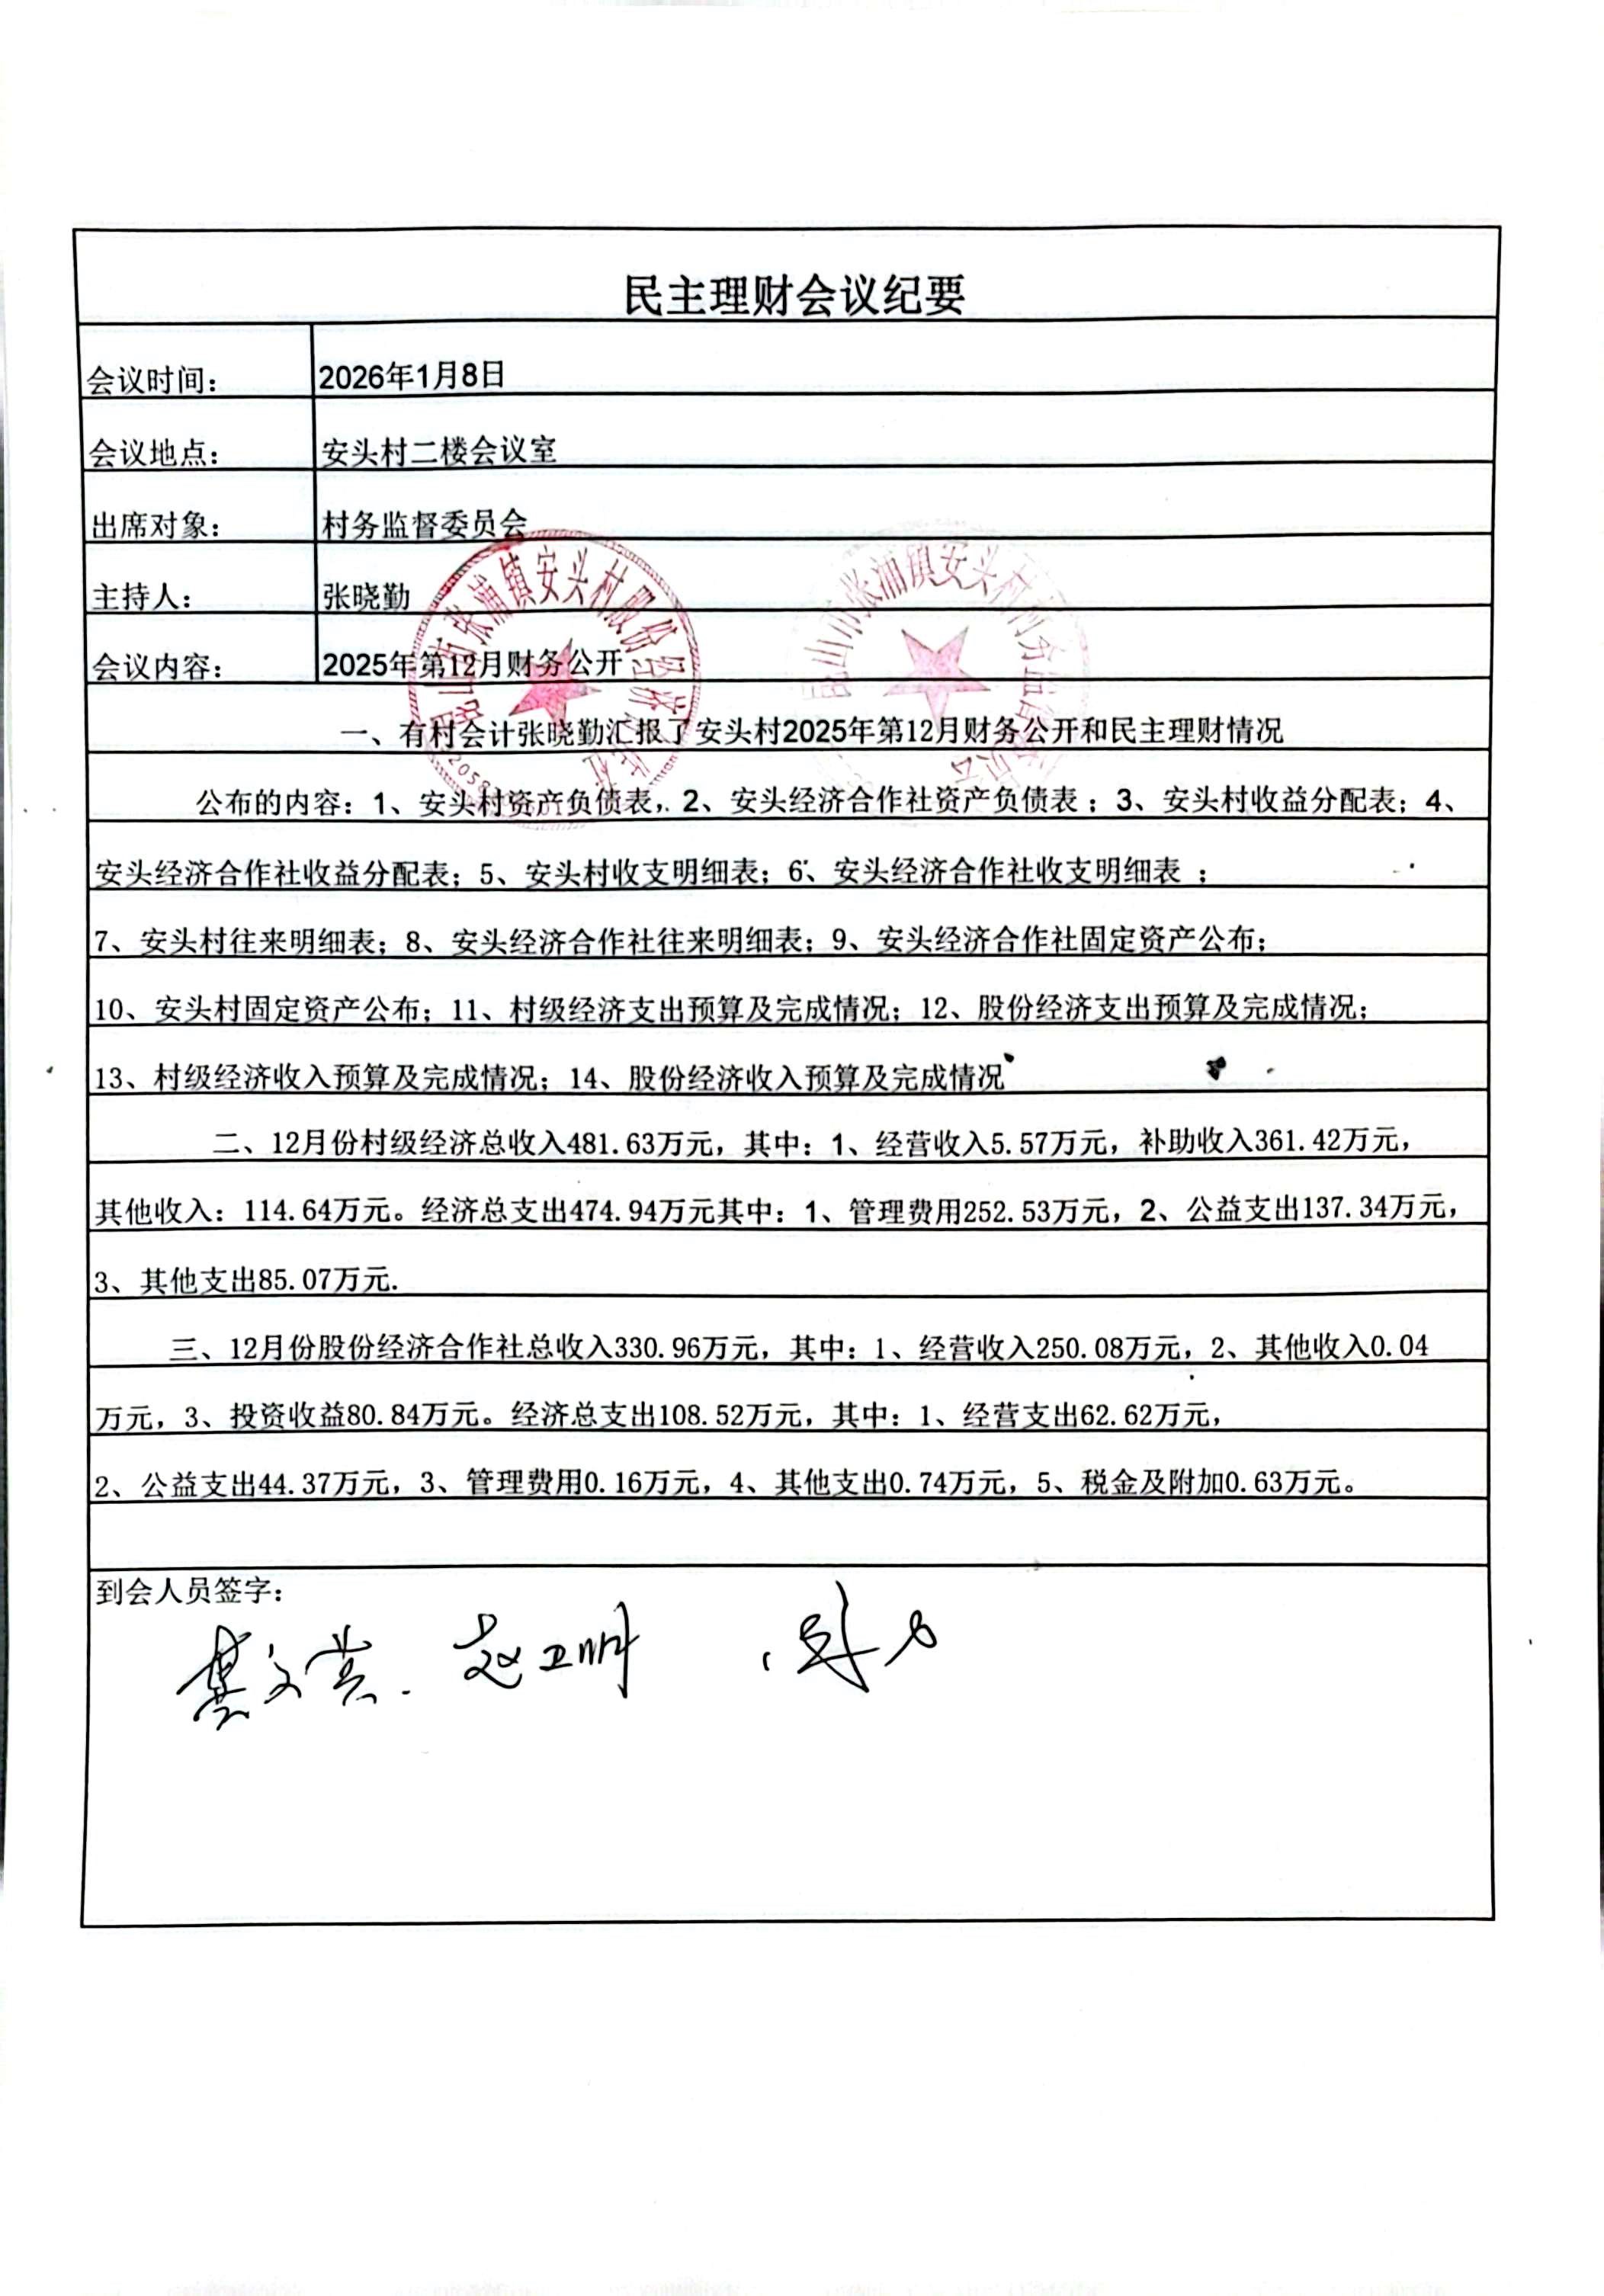 民主理财会议纪要
会议时间： 2026年1月8日
会议地点： 安头村二楼会议室
出席对象： 村务监督委员会
主持人： 张晓勤
会议内容： 2025年第12月财务公开
昆山市张浦镇安头村股份经济合作社
昆山市张浦镇安头村村务监督委员会
一、有村会计张晓勤汇报了安头村2025年第12月财务公开和民主理财情况
公布的内容：1、安头村资产负债表，2、安头经济合作社资产负债表；3、安头村收益分配表；4、
安头经济合作社收益分配表；5、安头村收支明细表；6、安头经济合作社收支明细表 ；
7、安头村往来明细表；8、安头经济合作社往来明细表；9、安头经济合作社固定资产公布；
10、安头村固定资产公布；11、村级经济支出预算及完成情况；12、股份经济支出预算及完成情况；
13、村级经济收入预算及完成情况；14、股份经济收入预算及完成情况
二、12月份村级经济总收入481.63万元，其中：1、经营收入5.57万元，补助收入361.42万元，
其他收入：114.64万元。经济总支出474.94万元其中：1、管理费用252.53万元，2、公益支出137.34万元，
3、其他支出85.07万元.
三、12月份股份经济合作社总收入330.96万元，其中：1、经营收入250.08万元，2、其他收入0.04
万元，3、投资收益80.84万元。经济总支出108.52万元，其中：1、经营支出62.62万元，
2、公益支出44.37万元，3、管理费用0.16万元，4、其他支出0.74万元，5、税金及附加0.63万元。
到会人员签字：
赵卫明